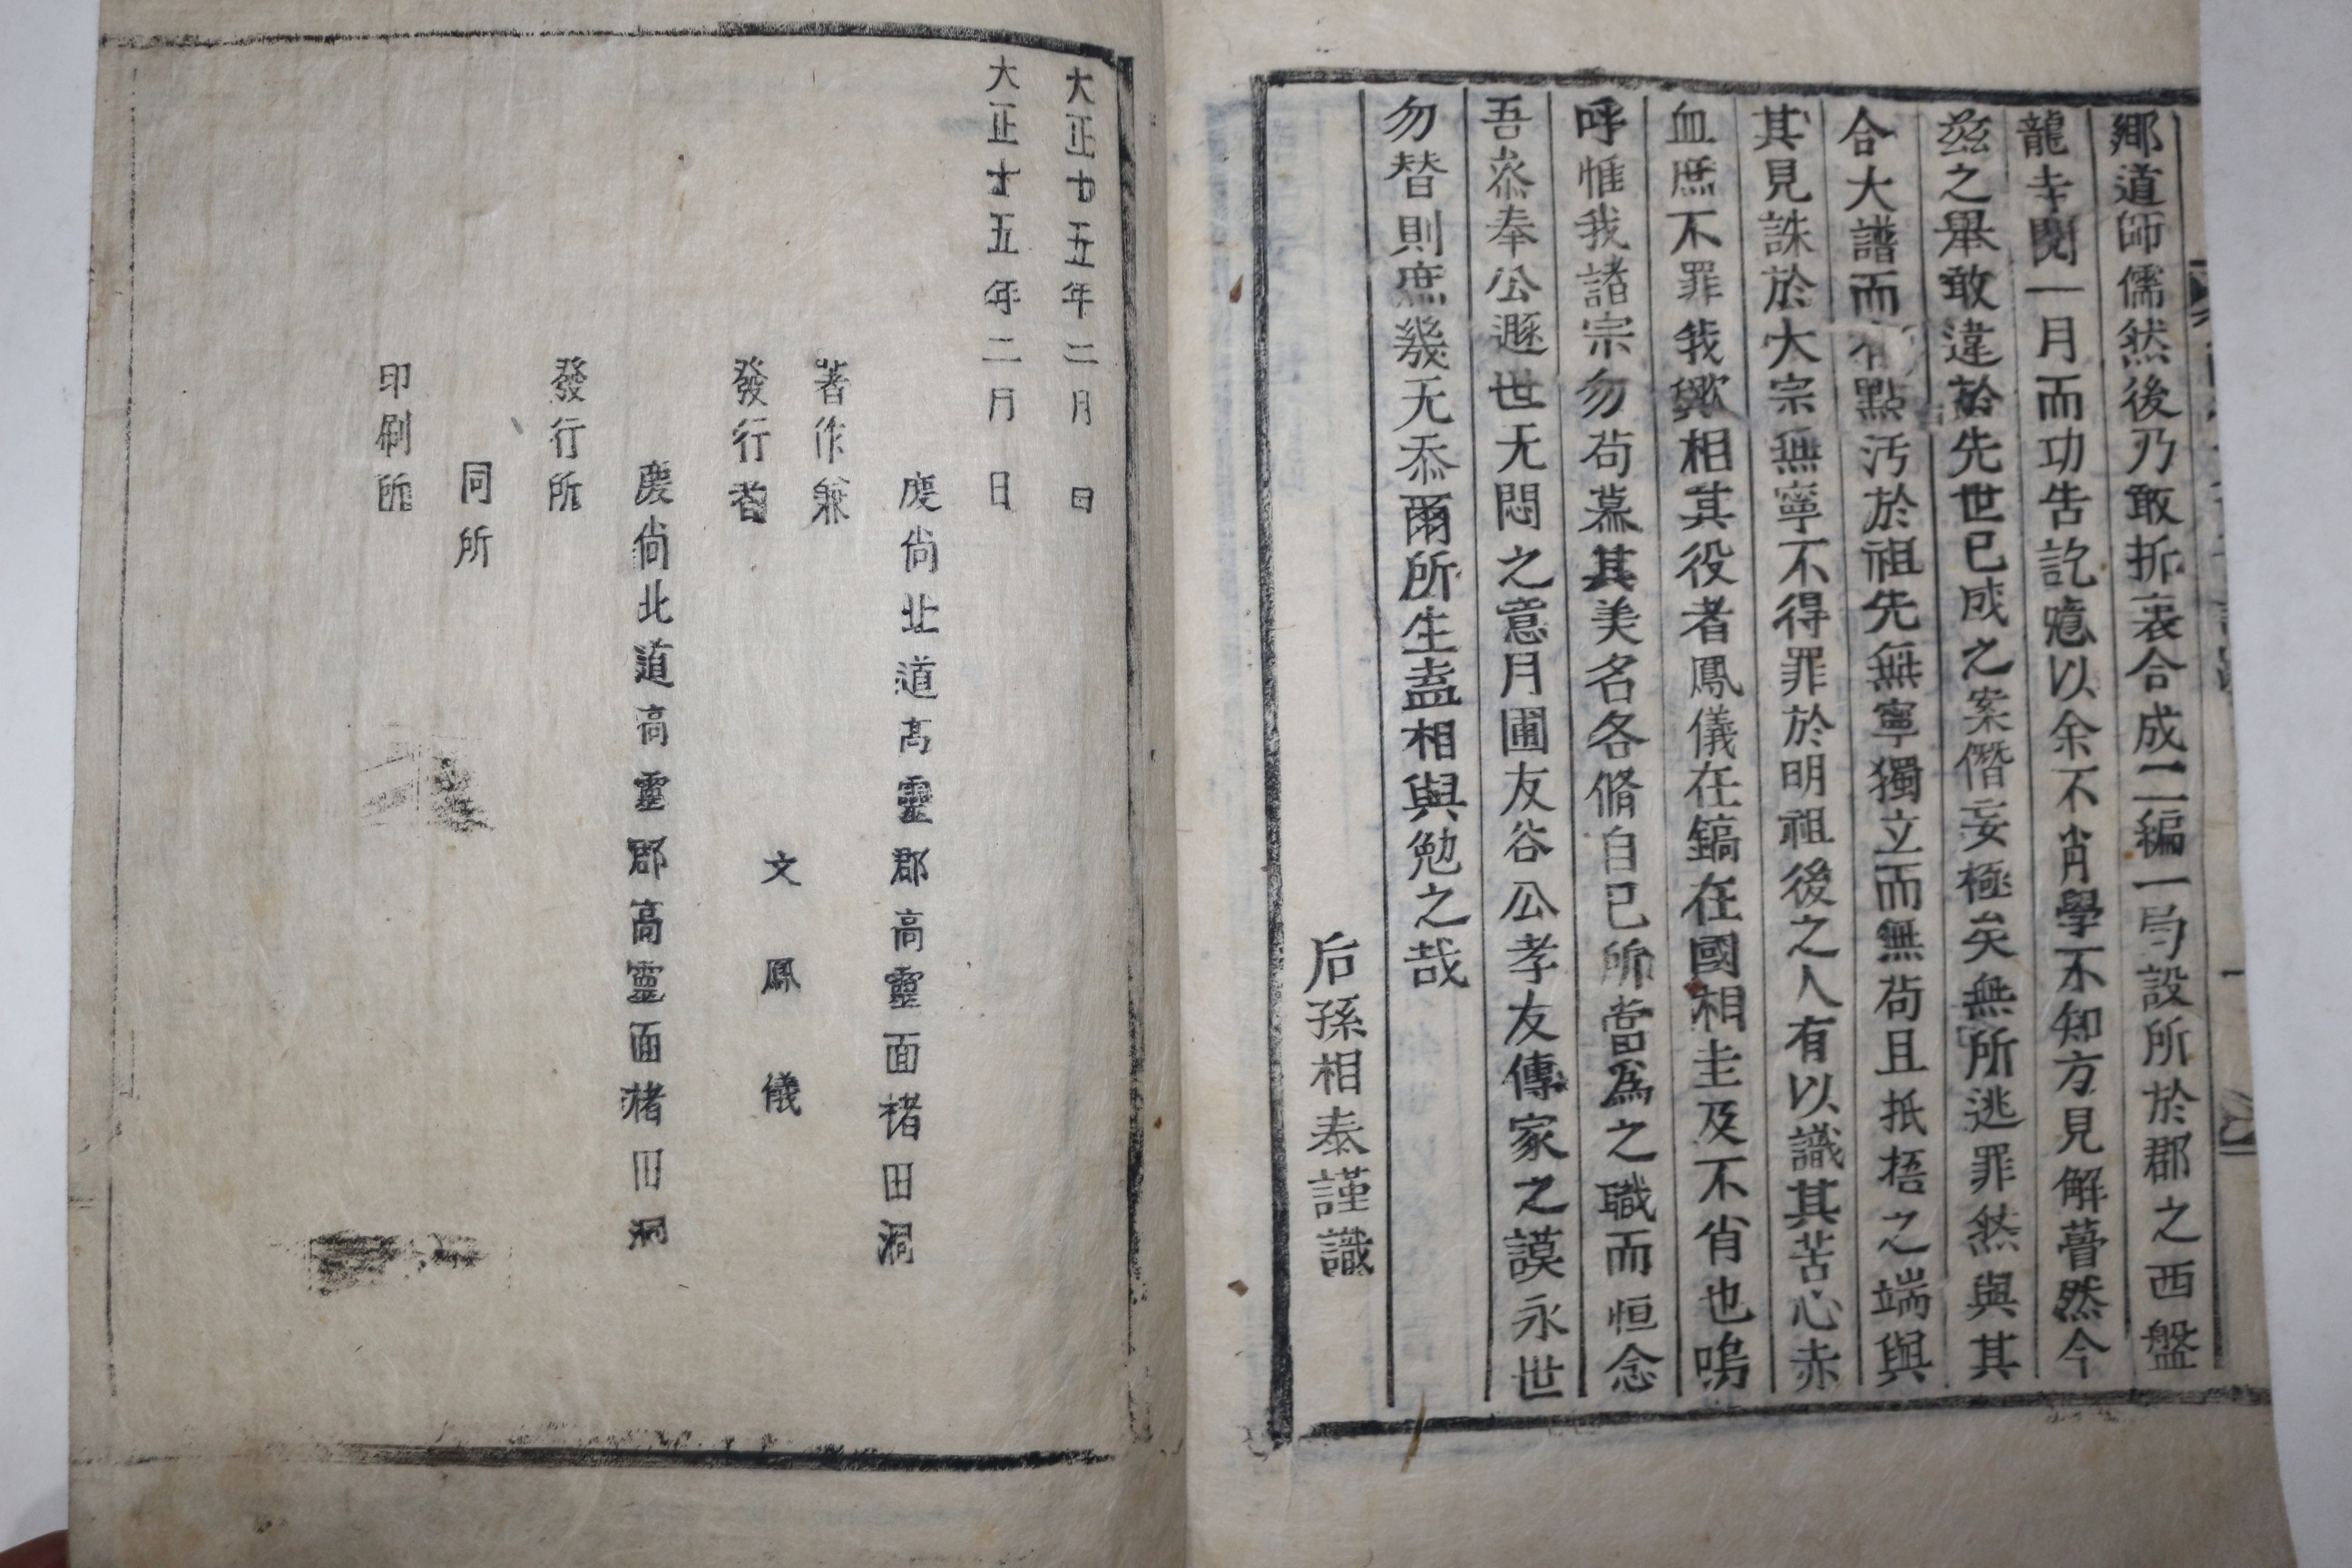 鄕道師儒然後乃敢折衷合成二編一局設所於郡之西盤
龍寺閱一月而功告訖噫以余不肖學不知方見解瞢然今
玆之擧敢違於先世已成之案僭妄極矣無所逃罪然與其
合大譜而有點汚於祖先無寧獨立而無苟且抵捂之端與
其見誅於大宗無寧不得罪於明祖後之人有以識其苦心赤
血庶不罪我歟相其役者鳳儀在鎬在國相圭及不肖也嗚
呼惟我諸宗勿苟慕其美名各脩自己所當爲之職而恒念
吾忝奉公遯世无悶之意月圃友谷公孝友傳家之謨永世
勿替則庶幾无忝爾所生盍相與勉之哉
后孫相泰謹識
大正十五年二月 日
大正十五年二月 日
慶尙北道高靈郡高靈面楮田洞
著作兼
發行者
文鳳儀
慶尙北道高靈郡高靈面楮田洞
發行所
同所
印刷所